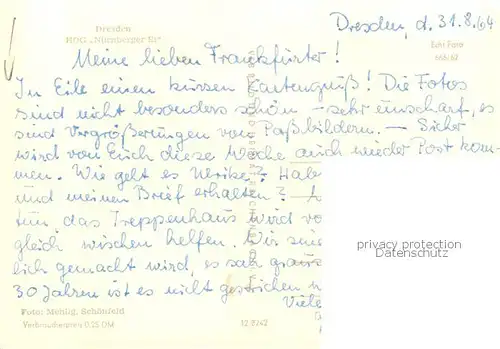 Dresden, d. 31.8.64
Dresden
HOG „Nürnberger Ei"
Echt Foto
668/62
Meine lieben Frankfurter!
In Eile einen kurzen Kartengruß! Die Fotos
sind nicht besonders schön – sehr unscharf, es
sind Vergrößerungen von Paßbildern. – Sicher
wird von Euch diese Woche auch wieder Post kom-
men. Wie geht es Ulrike? Hab
und meinen Brief erhalten?
tun, das Treppenhaus wird vo
gleich wischen helfen. Wir sin
lich gemacht wird, es sah graus
30 Jahren ist es nicht gestrichen
Viele
privacy protection
AnsichtskartenHandel.de
Foto: Mehlig, Schönfeld
Verbraucherpreis 0,25 DM
12 8242